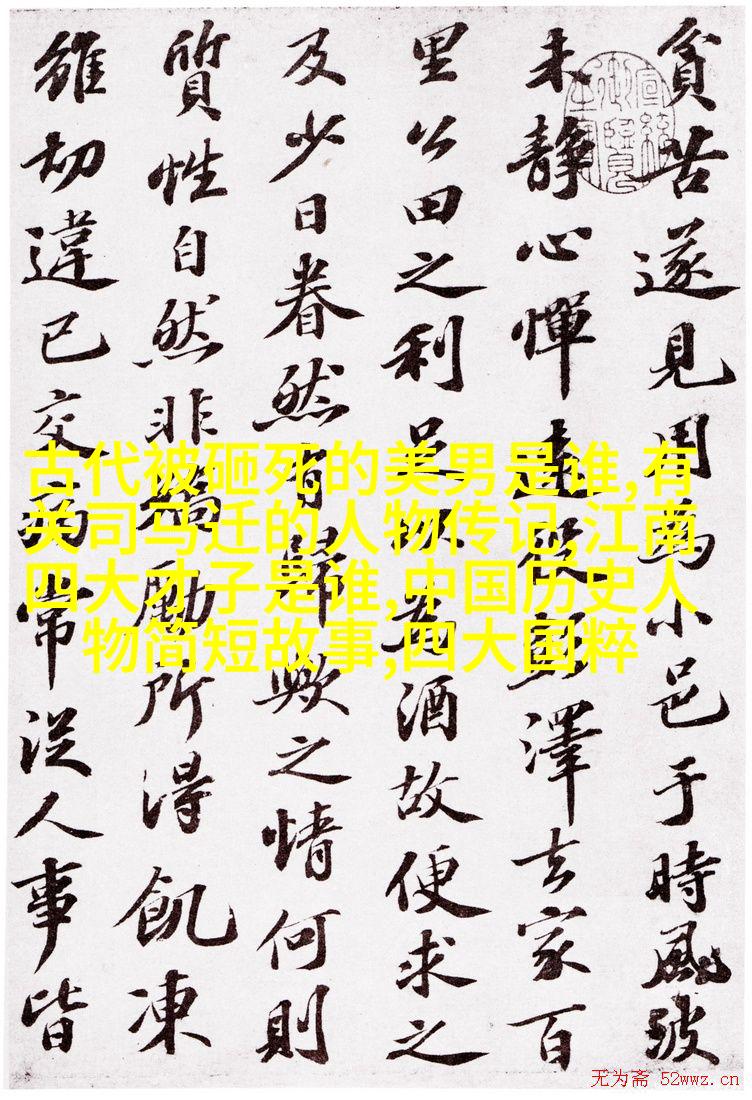 貧苦遂見用為小邑于時風波
未靜心憚遠役彭澤去家百
里公田之利足以為酒故便求之
及少日眷然有歸歟之情何則
質性自然非矯勵所得飢凍
雖切違已交病常從人事皆
古代被砸死的美男是谁,有
关司马迁的人物传记,江南
四大才子是谁,中国历史人
物简短故事,四大国粹
无为斋 52wwz.cn